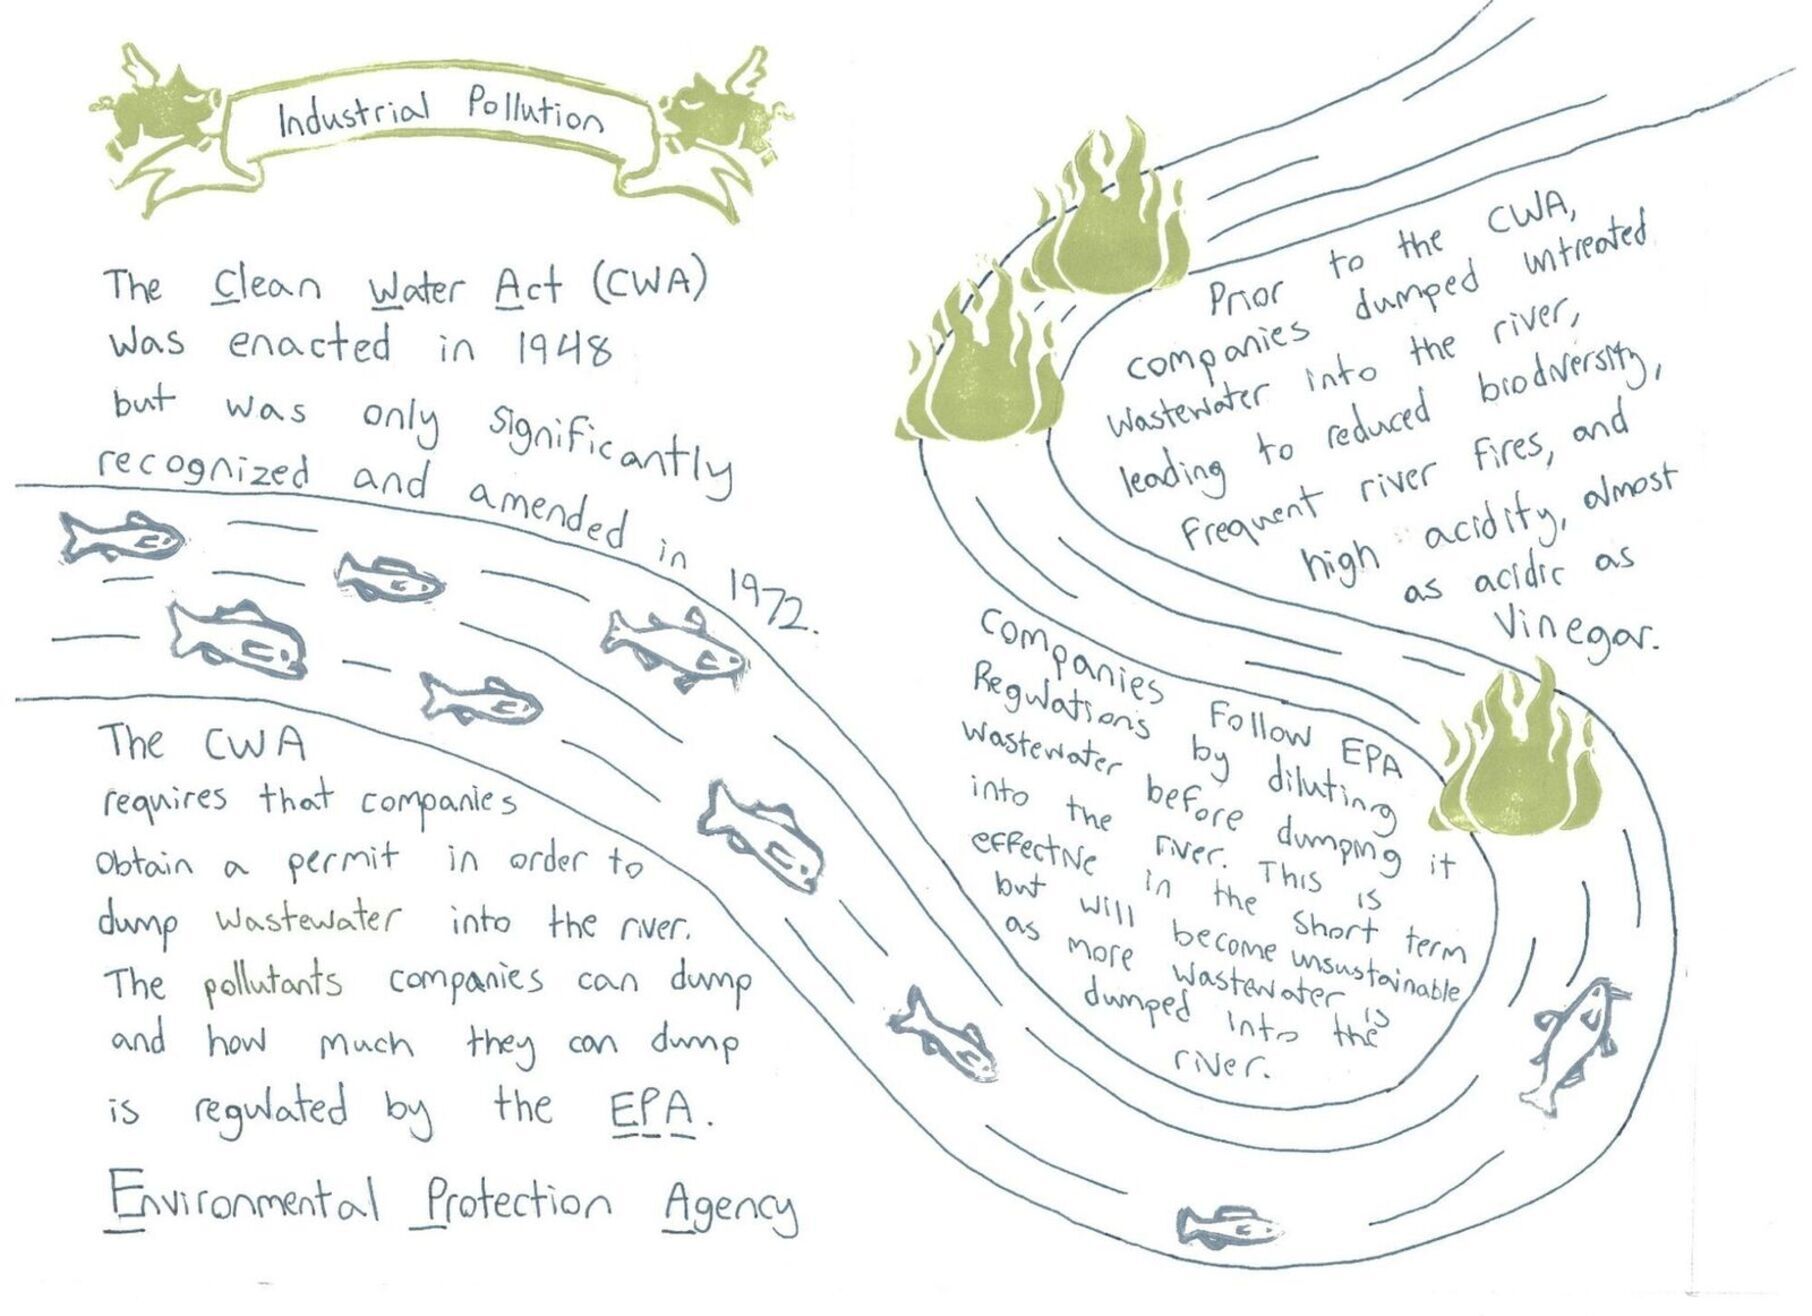 Industrial Pollution
The Clean Water Act (CWA)
was enacted in 1948
but was only significantly
recognized and amended in 1972.
The CWA
requires that companies
obtain a permit in order to
dump wastewater into the river.
The pollutants companies can dump
and how much they can dump
is regulated by the EPA.
Environmental Protection Agency
Prior to the CWA,
companies dumped untreated
wastewater into the river,
leading to reduced biodiversity,
frequent river fires, and
high acidity, almost
as acidic as
vinegar.
Companies follow EPA
Regulations by diluting
wastewater before dumping it
into the river. This is
effective in the short term
but will become unsustainable
as more wastewater is
dumped into the
river.